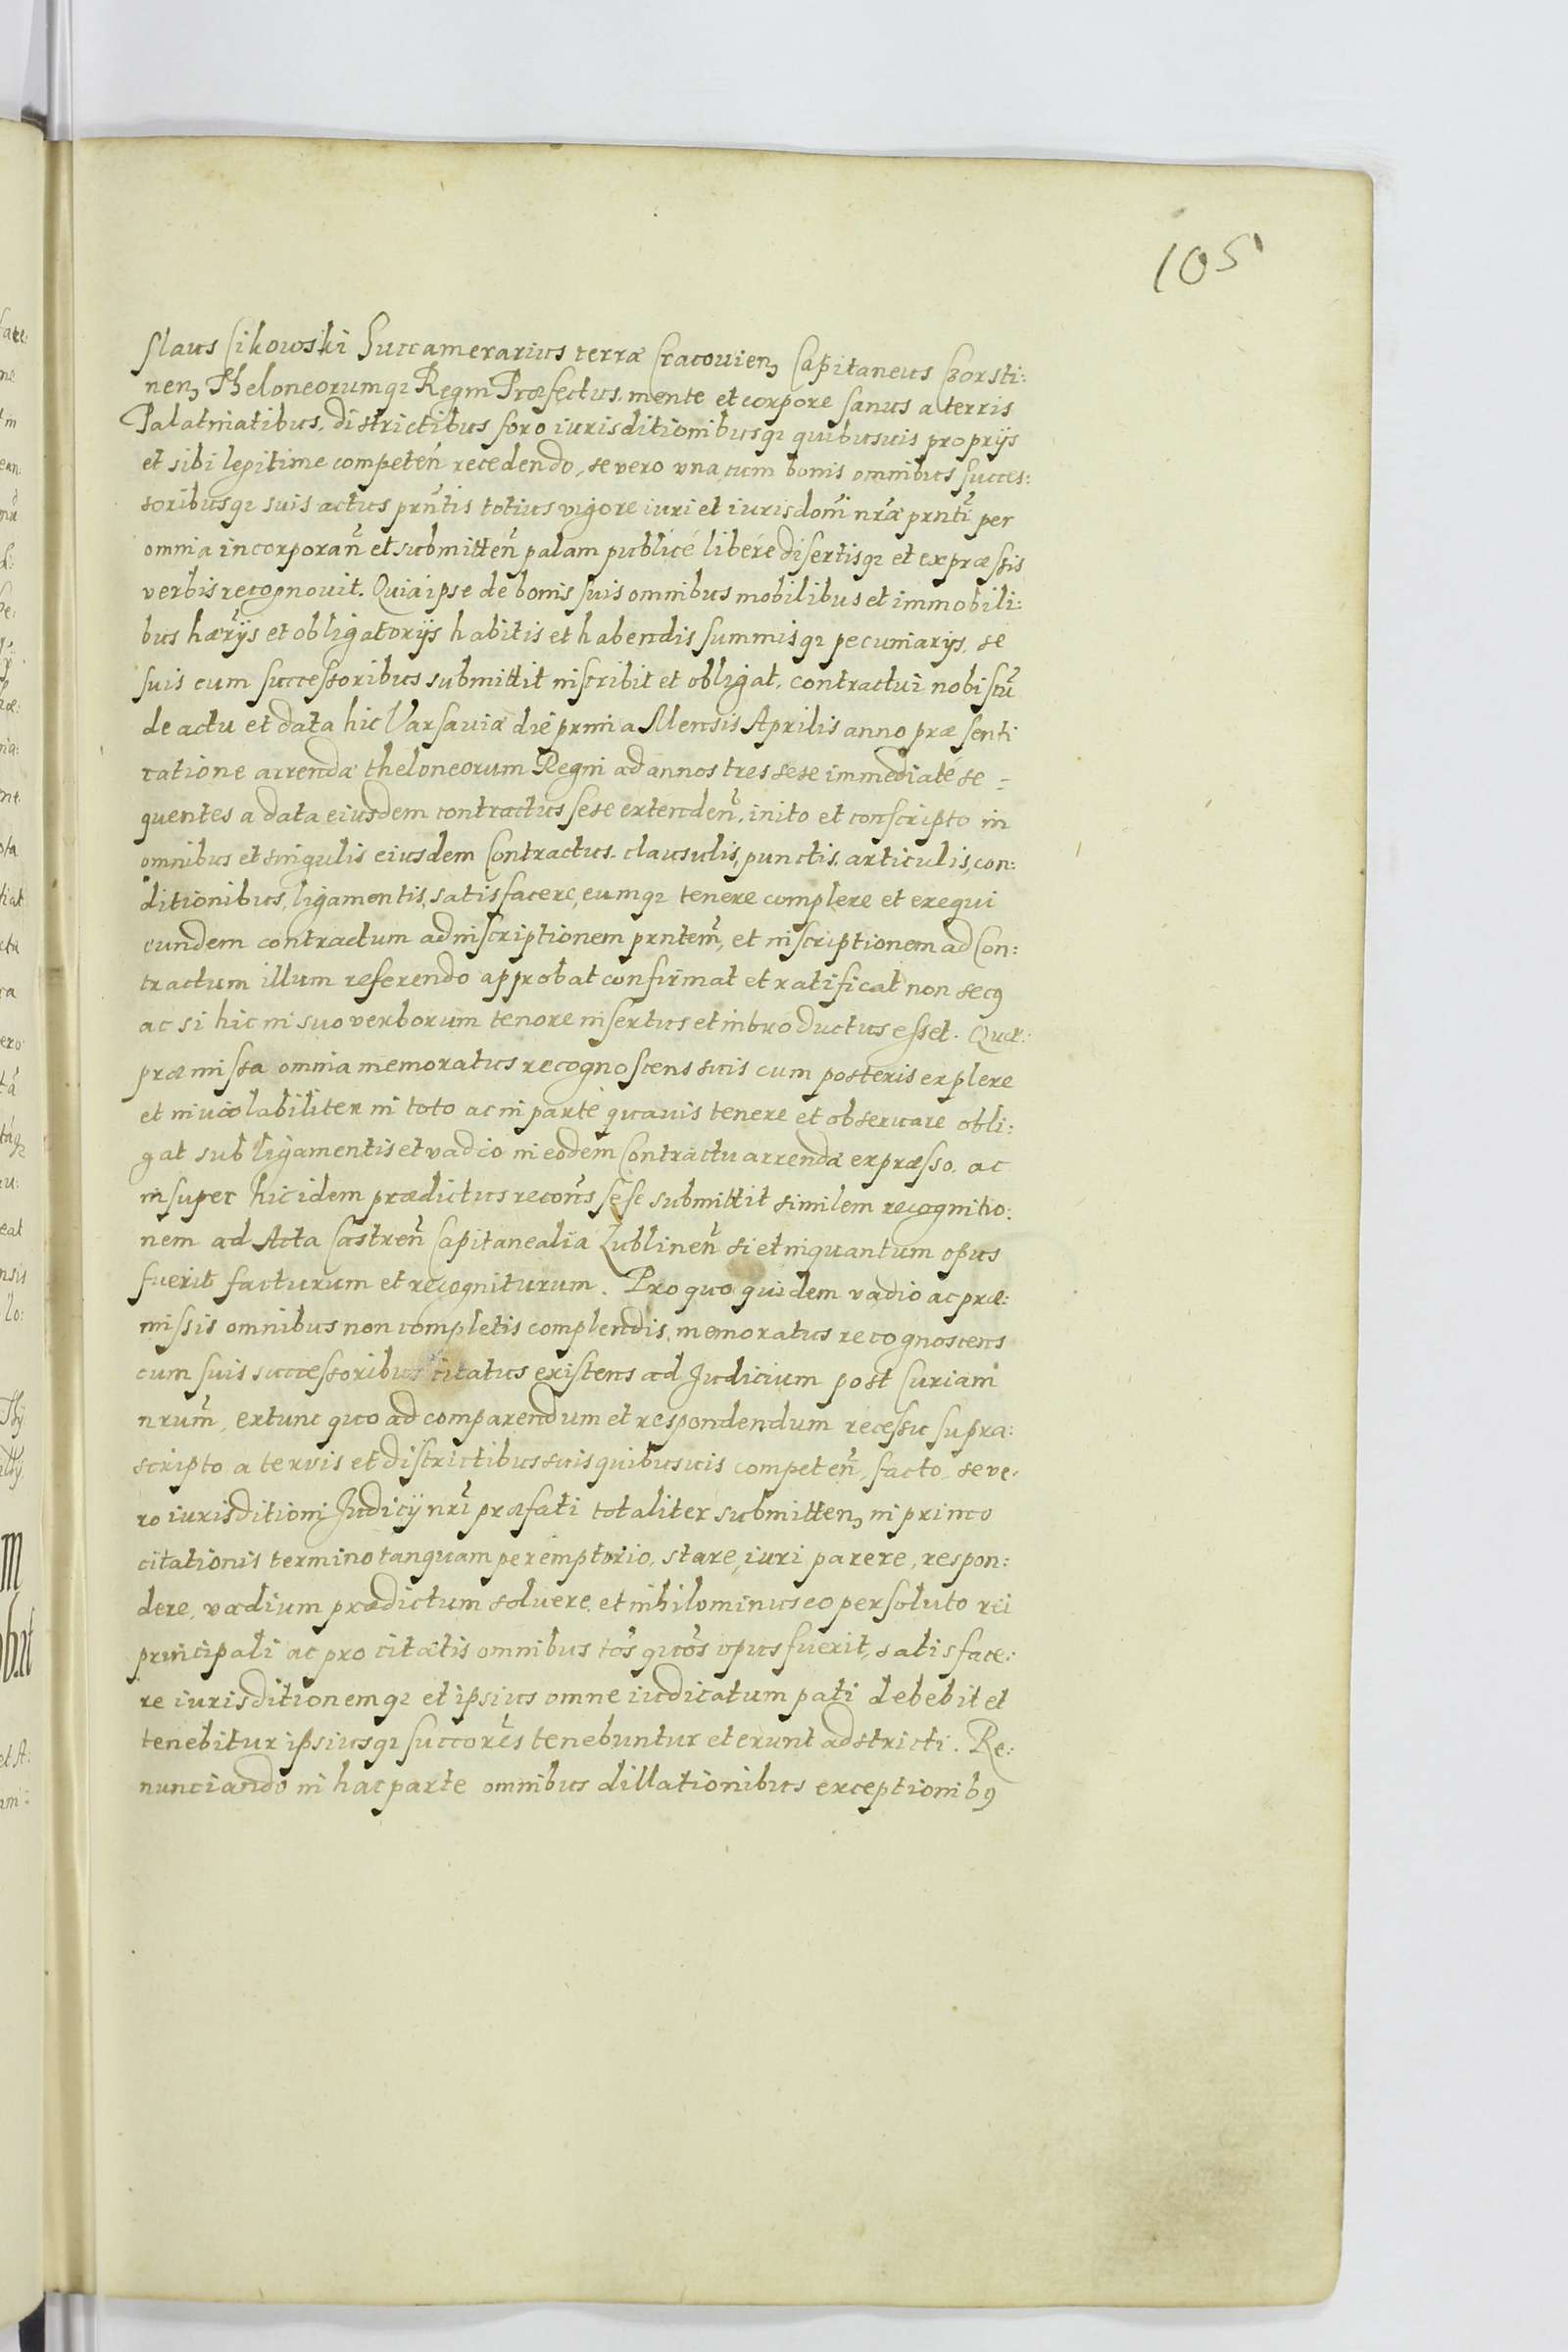 105
slaus Cikowski Succamerarius terræ Cracouienȝ Capitaneus Czorsti:
nenȝ Theloneorumqȝ Regni Præfectus. mente et corpore sanus a terris
Palatinatibus, districtibus foro iurisditionibusqȝ quibusuis proprijs
et sibi legitime competeñ recedendo, se vero vna cum bonis omnibus succes:
soribusqȝ suis actus prñtis totius vigore iuri et iurisdoñi nrã prñti per
omnia incorporañ et submitteñ palam publicé liberé disertisqȝ et expræssis
verbis recognouit. Quia ipse de bonis suis omnibus mobilibus et immobili:
bus hærijs et obligatorijs habitis et habendis summisqȝ pecuniarijs, se
suis cum successoribus submittit inscribit et obligat. contractui nobiscũ
de actu et data hic Varsauiæ die prima Mensis Aprilis anno præsenti
ratione arrendæ theloneorum Regni ad annos tres sese immediaté se=
quentes a data eiusdem contractus sese extendeñ. inito et conscripto in
omnibus et singulis eiusdem Contractus. clausulis, punctis. articulis, con:
ditionibus, ligamentis, satisfacere, eumqȝ tenere complere et exequi
eundem contractum ad inscriptionem prñtem, et inscriptionem ad Con:
tractum illum referendo approbat confirmat et ratificat non secꝰ
ac si hic in suo verborum tenore insertus et introductus esset. Quæ:
præmissa omnia memoratus recognoscens suis cum posteris explere
et inuiolabiliter in toto ac in parte quauis tenere et obseruare obli:
gat sub ligamentis et vadio in eodem Contractu arrendæ expræsso. ac
insuper hic idem prædictus recoñs sese submittit similem recognitio:
nem ad Acta Castreñ Capitanealia Lublineñ si et inquantum opus
fuerit facturum et recogniturum. Pro quo quidem vadio ac præ:
missis omnibus non completis complendis, memoratus recognoscens
cum suis successoribus citatus existens ad Judicium post Curiam
nrum̃, extunc quo ad comparendum et respondendum recessu supra:
scripto a terris et districtibus suis quibusuis competeñ, facto, se ve:
ro iurisditioni Judicij nrĩ præfati totaliter submittenȝ in primo
citationis termino tanquam peremptorio, stare, iuri parere, respon:
dere, vadium prædictum soluere, et nihilominus eo persoluto rei
principali ac pro citatis omnibus tõs quõs opus fuerit, satisface:
re iurisditionemqȝ et ipsius omne iudicatum pati debebit et
tenebitur ipsiusqȝ succorẽs tenebuntur et erunt adstricti. Re:
nunciando in hac parte omnibus dillationibus exceptionibꝰ